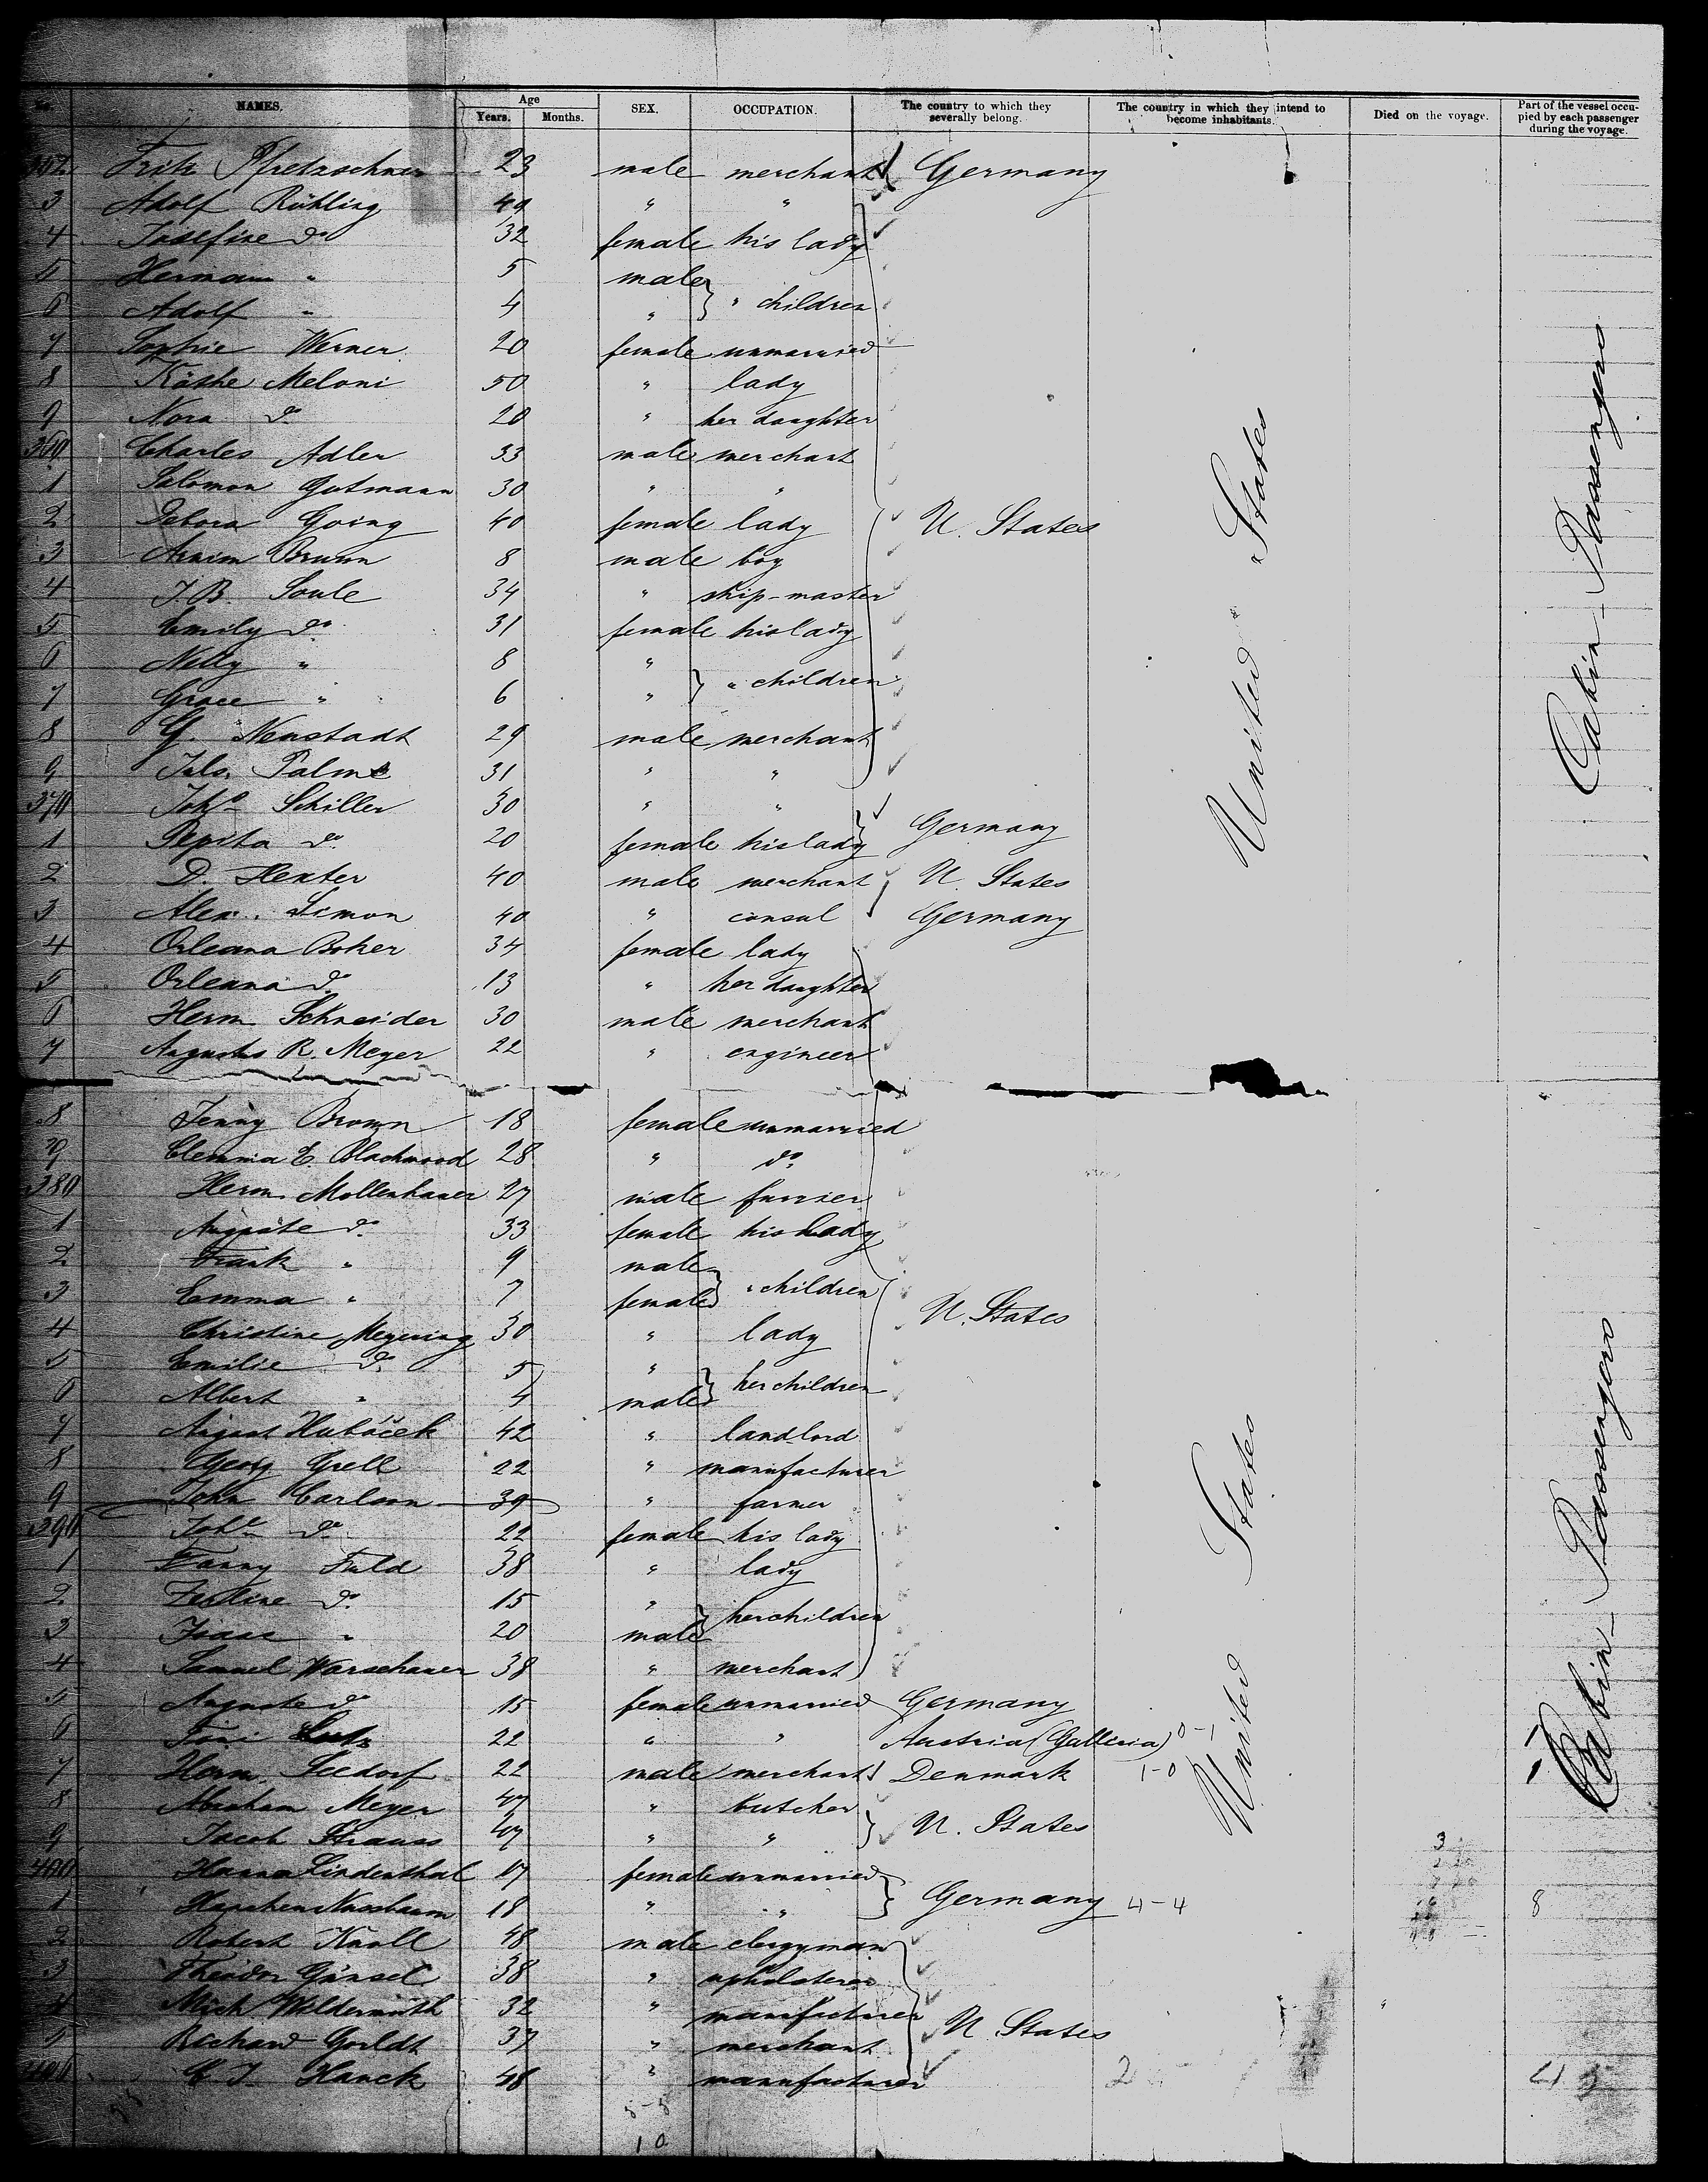 No. NAMES. Age Years. Months. SEX. OCCUPATION. The country to which they severally belong. The country in which they intend to become inhabitants. Died on the voyage. Part of the vessel occupied by each passenger during the voyage.
352 Fritz Pfretzschner 23 male merchant Germany
3 Adolf Rühling 49 " "
4 Josefine do 32 female his lady
5 Hermann " 5 male
6 Adolf " 4 " " children
7 Sophie Werner 20 female unmarried
8 Käthe Meloni 50 " lady
9 Nora do 20 " her daughter
360 Charles Adler 33 male merchant
1 Salomon Gutmann 30 " "
2 Debora Going 40 female lady U. States
3 Armin Brunn 8 male boy
4 J. B. Soule 34 " ship-master
5 Emily do 31 female his lady
6 Nelly " 8 "
7 Grace " 6 " " children
8 G. Neustadt 29 male merchant
9 Juls. Palme 31 " "
370 Joho Schiller 30 " "
1 Pepita do 20 female his lady Germany
2 D. Hexter 40 male merchant U. States
3 Alex. Simon 40 " consul Germany
4 Orleana Boker 34 female lady
5 Orleana do 13 " her daughter
6 Herm. Schneider 30 male merchant
7 Augustus R. Meyer 22 " engineer
United States
Cabin-Passengers
8 Jenny Brown 18 female unmarried
79 Clemma E. Blackwood 28 " do
380 Herm. Mollenhauer 27 male furrier
1 Auguste do 33 female his Lady
2 Frank " 9 male
3 Emma " 7 female " children
4 Christine Meyering 30 " lady U. States
5 Emilie do 5 "
6 Albert " 4 male her children
7 August Hubáček 42 " landlord
8 Georg Grell 22 " manufacturer
9 John Carlson 39 " farmer
390 do 22 female his lady
1 Fanny Fuld 38 " lady
2 do 15 "
3 Isaac " 20 male her children
4 Samuel Warschauer 38 " merchant
5 Auguste do 15 female unmarried Germany
6 22 " " Austria (Gallicia) 0-1
7 Herm. Seedorf 22 male merchant Denmark 1-0
8 Abraham Meyer 47 " butcher
9 Jacob Strauss 47 " " U. States
400 Hanna Lindenthal 17 female unmarried
1 Hanchen Nussbaum 18 " " Germany 4-4 8
2 Robert Knoll 48 male clergyman
3 Theodor Gänsel 38 " upholsterer
4 Mich Wildermuth 32 " manufacturer
5 Richard Gorldt 37 " merchant U. States
406 C. J. Hanck 48 " manufacturer
United States
Cabin-Passengers
3